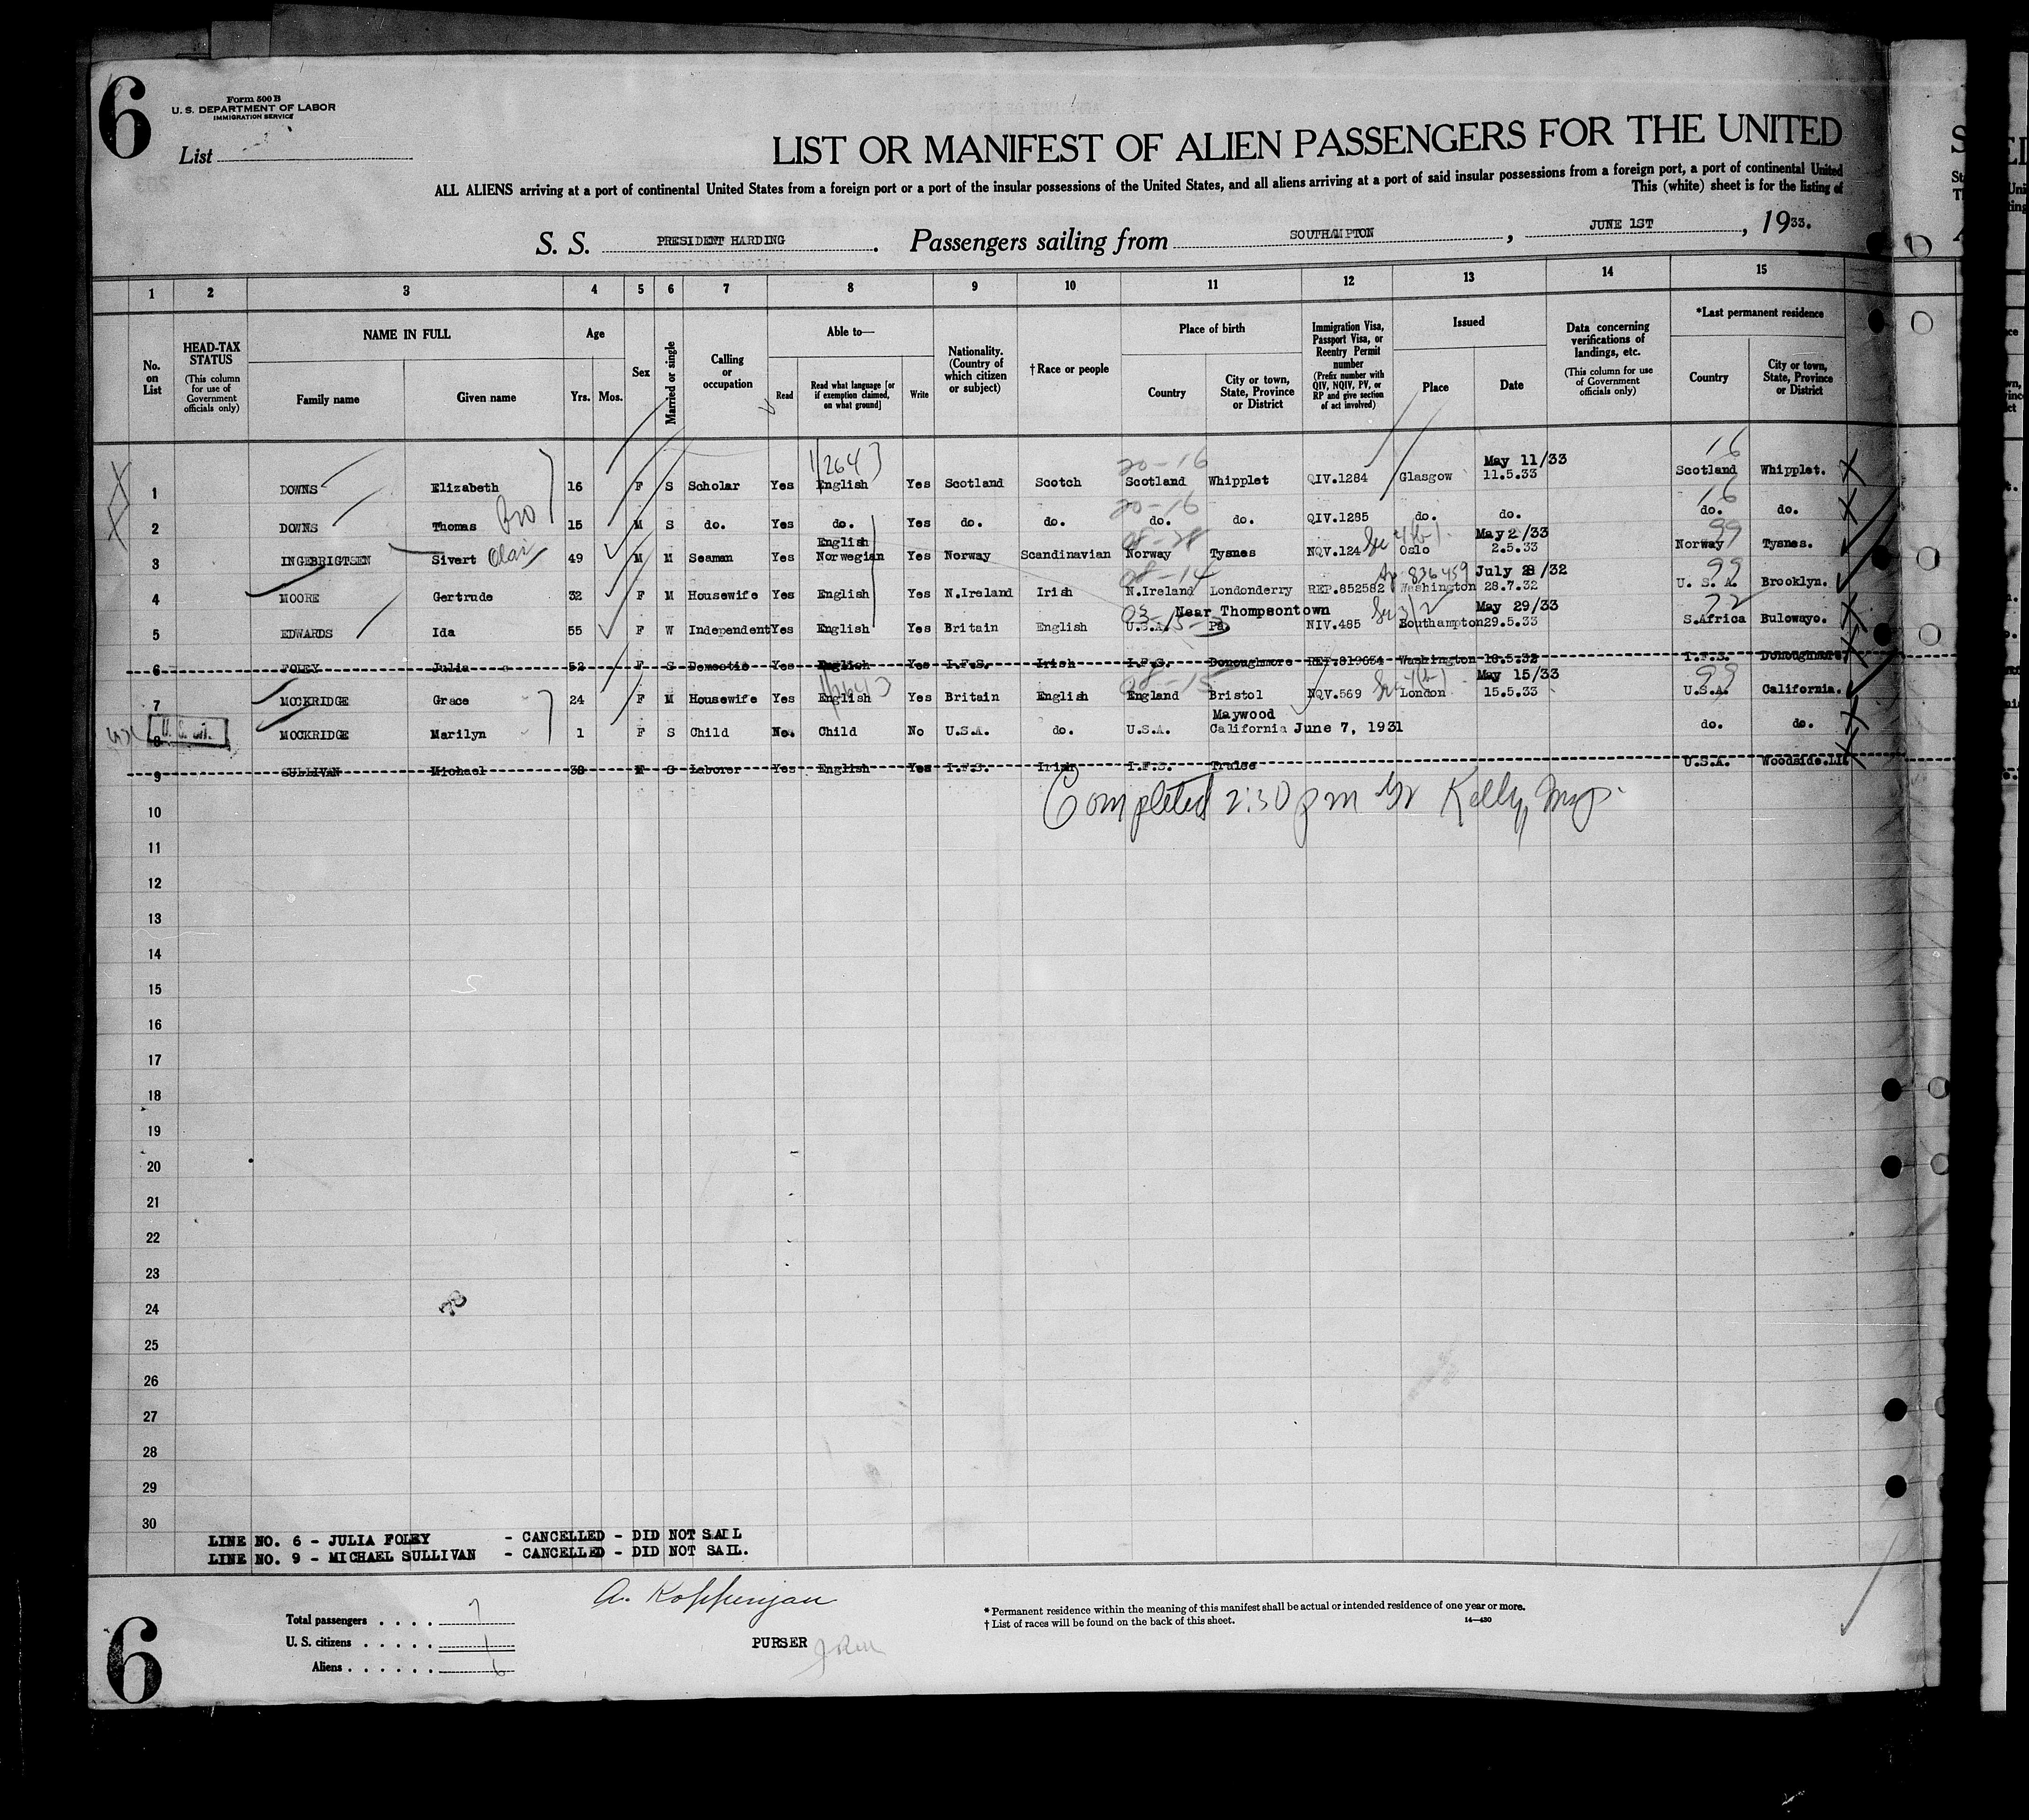 6
Form 500 B
U. S. DEPARTMENT OF LABOR
IMMIGRATION SERVICE
List
LIST OR MANIFEST OF ALIEN PASSENGERS FOR THE UNITED
ALL ALIENS arriving at a port of continental United States from a foreign port or a port of the insular possessions of the United States, and all aliens arriving at a port of said insular possessions from a foreign port, a port of continental United
This (white) sheet is for the listing of
S. S. PRESIDENT HARDING. Passengers sailing from SOUTHAMPTON, JUNE 1ST, 1933.
1 2 3 4 5 6 7 8 9 10 11 12 13 14 15
No. on List
HEAD-TAX STATUS (This column for use of Government officials only)
NAME IN FULL
Family name Given name
Age
Yrs. Mos.
Sex
Married or single
Calling or occupation
Able to—
Read Read what language [or if exemption claimed, on what ground] Write
Nationality. (Country of which citizen or subject)
†Race or people
Place of birth
Country City or town, State, Province or District
Immigration Visa, Passport Visa, or Reentry Permit number (Prefix number with QIV, NQIV, PV, or RP and give section of act involved)
Issued
Place Date
Data concerning verifications of landings, etc. (This column for use of Government officials only)
*Last permanent residence
Country City or town, State, Province or District
1/264 20-16 May 11/33 16
1 DOWNS Elizabeth 16 F S Scholar Yes English Yes Scotland Scotch Scotland Whipplet QIV.1284 Glasgow 11.5.33 Scotland Whipplet.
20-16 16
2 DOWNS Thomas Bro 15 M S do. Yes do. Yes do. do. do. do. QIV.1285 do. do. do. do.
English 08-28 Sec 4(b) May 2/33 99
3 INGEBRIGTSEN Sivert Olai 49 M M Seaman Yes Norwegian Yes Norway Scandinavian Norway Tysnes NQV.124 Oslo 2.5.33 Norway Tysnes.
08-14 836459 July 28/32 99
4 MOORE Gertrude 32 F M Housewife Yes English Yes N.Ireland Irish N.Ireland Londonderry REP.852582 Washington 28.7.32 U. S. A. Brooklyn.
03-15-3 Near Thompsontown Sec 3/2 May 29/33 72
5 EDWARDS Ida 55 F W Independent Yes English Yes Britain English U.S.A. Pa. NIV.485 Southampton 29.5.33 S.Africa Bulowayo.
6 FOLEY Julia 52 F S Domestic Yes English Yes I.F.S. Irish I.F.S. Donoughmore REP.819634 Washington 18.5.32 I.F.S. Donoughmore
1/264 08-15 Sec 4(b) May 15/33 99
7 MOCKRIDGE Grace 24 F M Housewife Yes English Yes Britain English England Bristol NQV.569 London 15.5.33 U.S.A. California.
U. S. cit. Maywood
8 MOCKRIDGE Marilyn 1 F S Child No. Child No U.S.A. do. U.S.A. California June 7, 1931 do. do.
9 SULLIVAN Michael 38 M S Laborer Yes English Yes I.F.S. Irish I.F.S. Tralee U.S.A. Woodside.LI
Completed 2:30 pm Kelly, Insp.
10
11
12
13
14
15
16
17
18
19
20
21
22
23
24
25
26
27
28
29
30
LINE NO. 6 - JULIA FOLEY - CANCELLED - DID NOT SAIL
LINE NO. 9 - MICHAEL SULLIVAN - CANCELLED - DID NOT SAIL.
6
Total passengers . . . . 7
U. S. citizens . . . . . 1
Aliens . . . . . . 6
A. Koppenjan
PURSER
* Permanent residence within the meaning of this manifest shall be actual or intended residence of one year or more.
† List of races will be found on the back of this sheet.
14—430